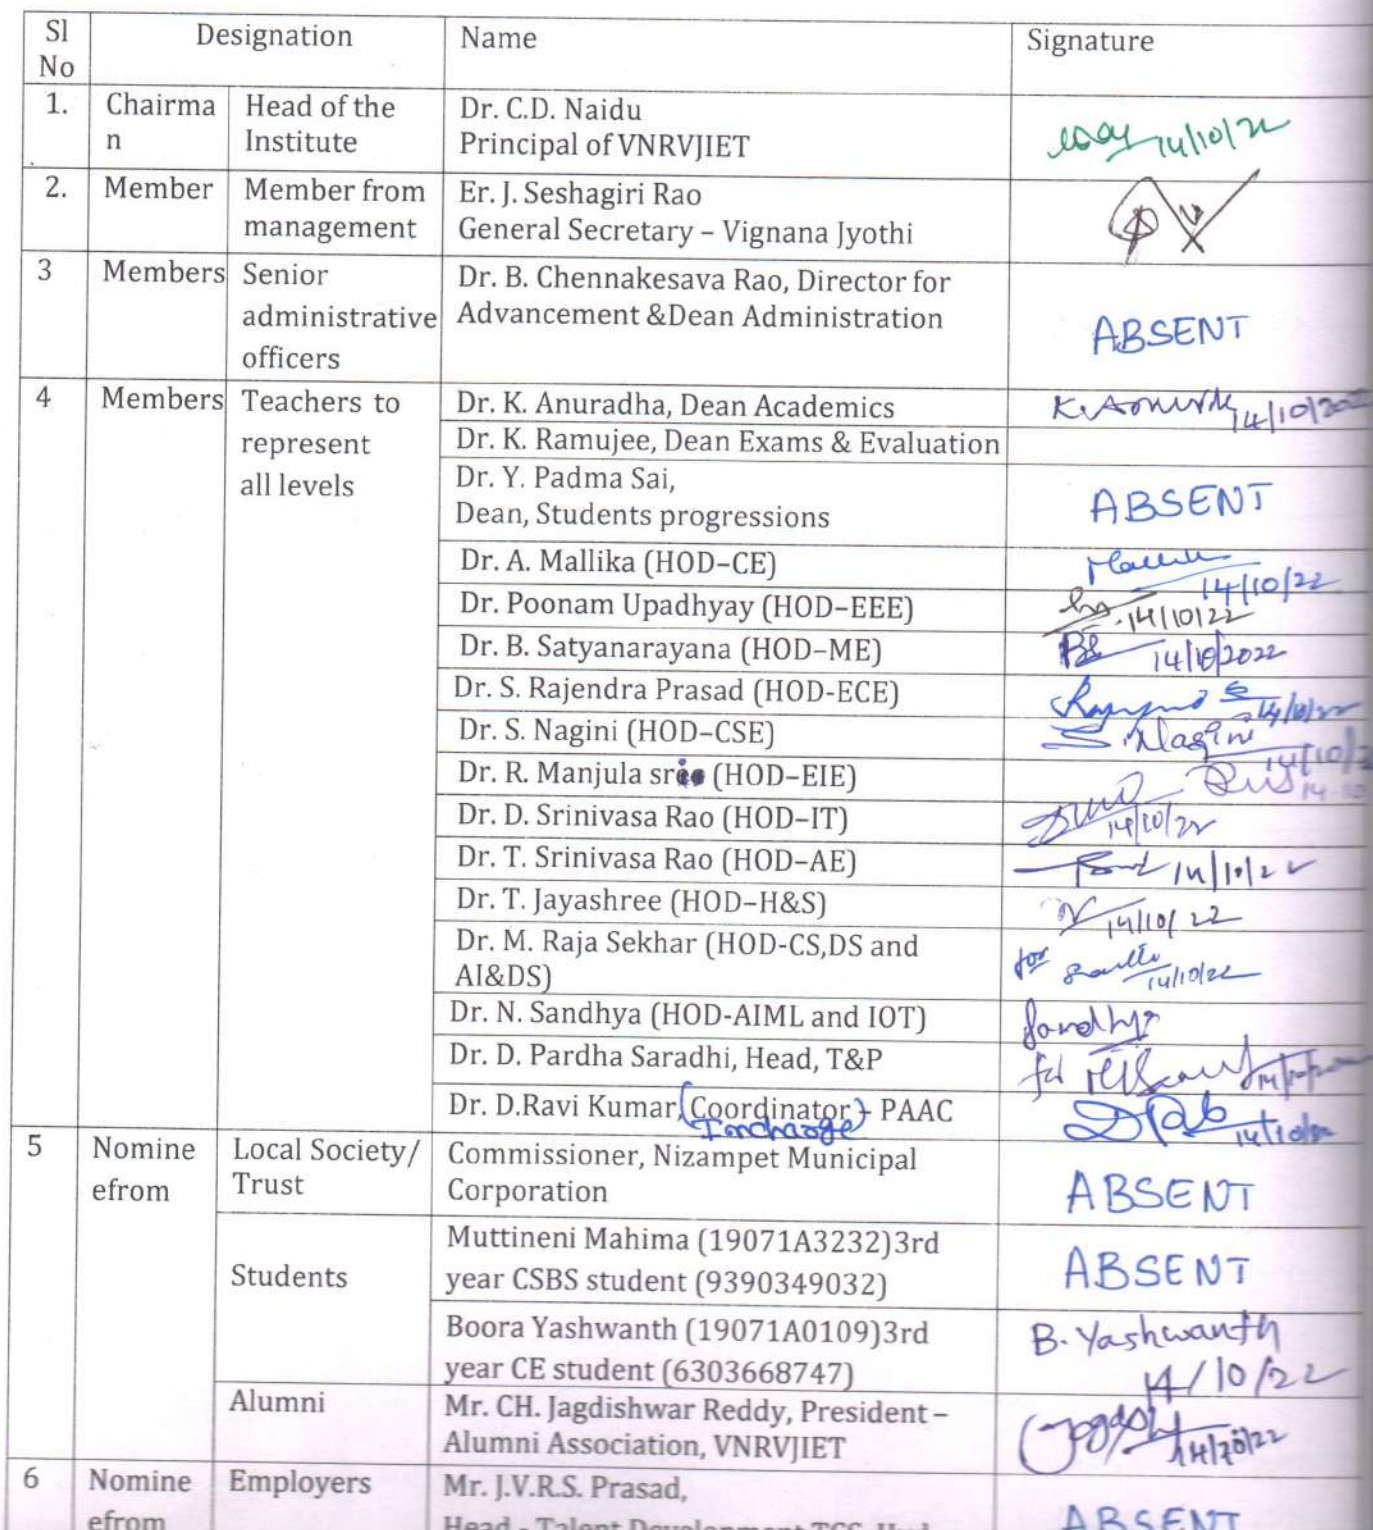 Sl
No
Designation
Name
Signature
1.
Chairma
n
Head of the
Institute
Dr. C.D. Naidu
Principal of VNRVJIET
14/10/22
2.
Member
Member from
management
Er. J. Seshagiri Rao
General Secretary – Vignana Jyothi
3
Members
Senior
administrative
officers
Dr. B. Chennakesava Rao, Director for
Advancement &Dean Administration
ABSENT
4
Members
Teachers to
represent
all levels
Dr. K. Anuradha, Dean Academics
14/10/2022
Dr. K. Ramujee, Dean Exams & Evaluation
Dr. Y. Padma Sai,
Dean, Students progressions
ABSENT
Dr. A. Mallika (HOD–CE)
14/10/22
Dr. Poonam Upadhyay (HOD–EEE)
14/10/22
Dr. B. Satyanarayana (HOD–ME)
14/10/2022
Dr. S. Rajendra Prasad (HOD-ECE)
14/10/22
Dr. S. Nagini (HOD–CSE)
S. Nagini
14/10/2
Dr. R. Manjula sri (HOD–EIE)
14-10
Dr. D. Srinivasa Rao (HOD–IT)
14/10/22
Dr. T. Srinivasa Rao (HOD–AE)
14/10/22
Dr. T. Jayashree (HOD–H&S)
14/10/22
Dr. M. Raja Sekhar (HOD-CS,DS and
AI&DS)
for
14/10/22
Dr. N. Sandhya (HOD-AIML and IOT)
Sandhya
Dr. D. Pardha Saradhi, Head, T&P
for
Dr. D.Ravi Kumar, (Coordinator) – PAAC
Incharge
14/10/22
5
Nomine
efrom
Local Society/
Trust
Commissioner, Nizampet Municipal
Corporation
ABSENT
Students
Muttineni Mahima (19071A3232)3rd
year CSBS student (9390349032)
ABSENT
Boora Yashwanth (19071A0109)3rd
year CE student (6303668747)
B. Yashwanth
14/10/22
Alumni
Mr. CH. Jagdishwar Reddy, President –
Alumni Association, VNRVJIET
14/10/22
6
Nomine
efrom
Employers
Mr. J.V.R.S. Prasad,
Head - Talent Development TCS, Hyd
ABSENT